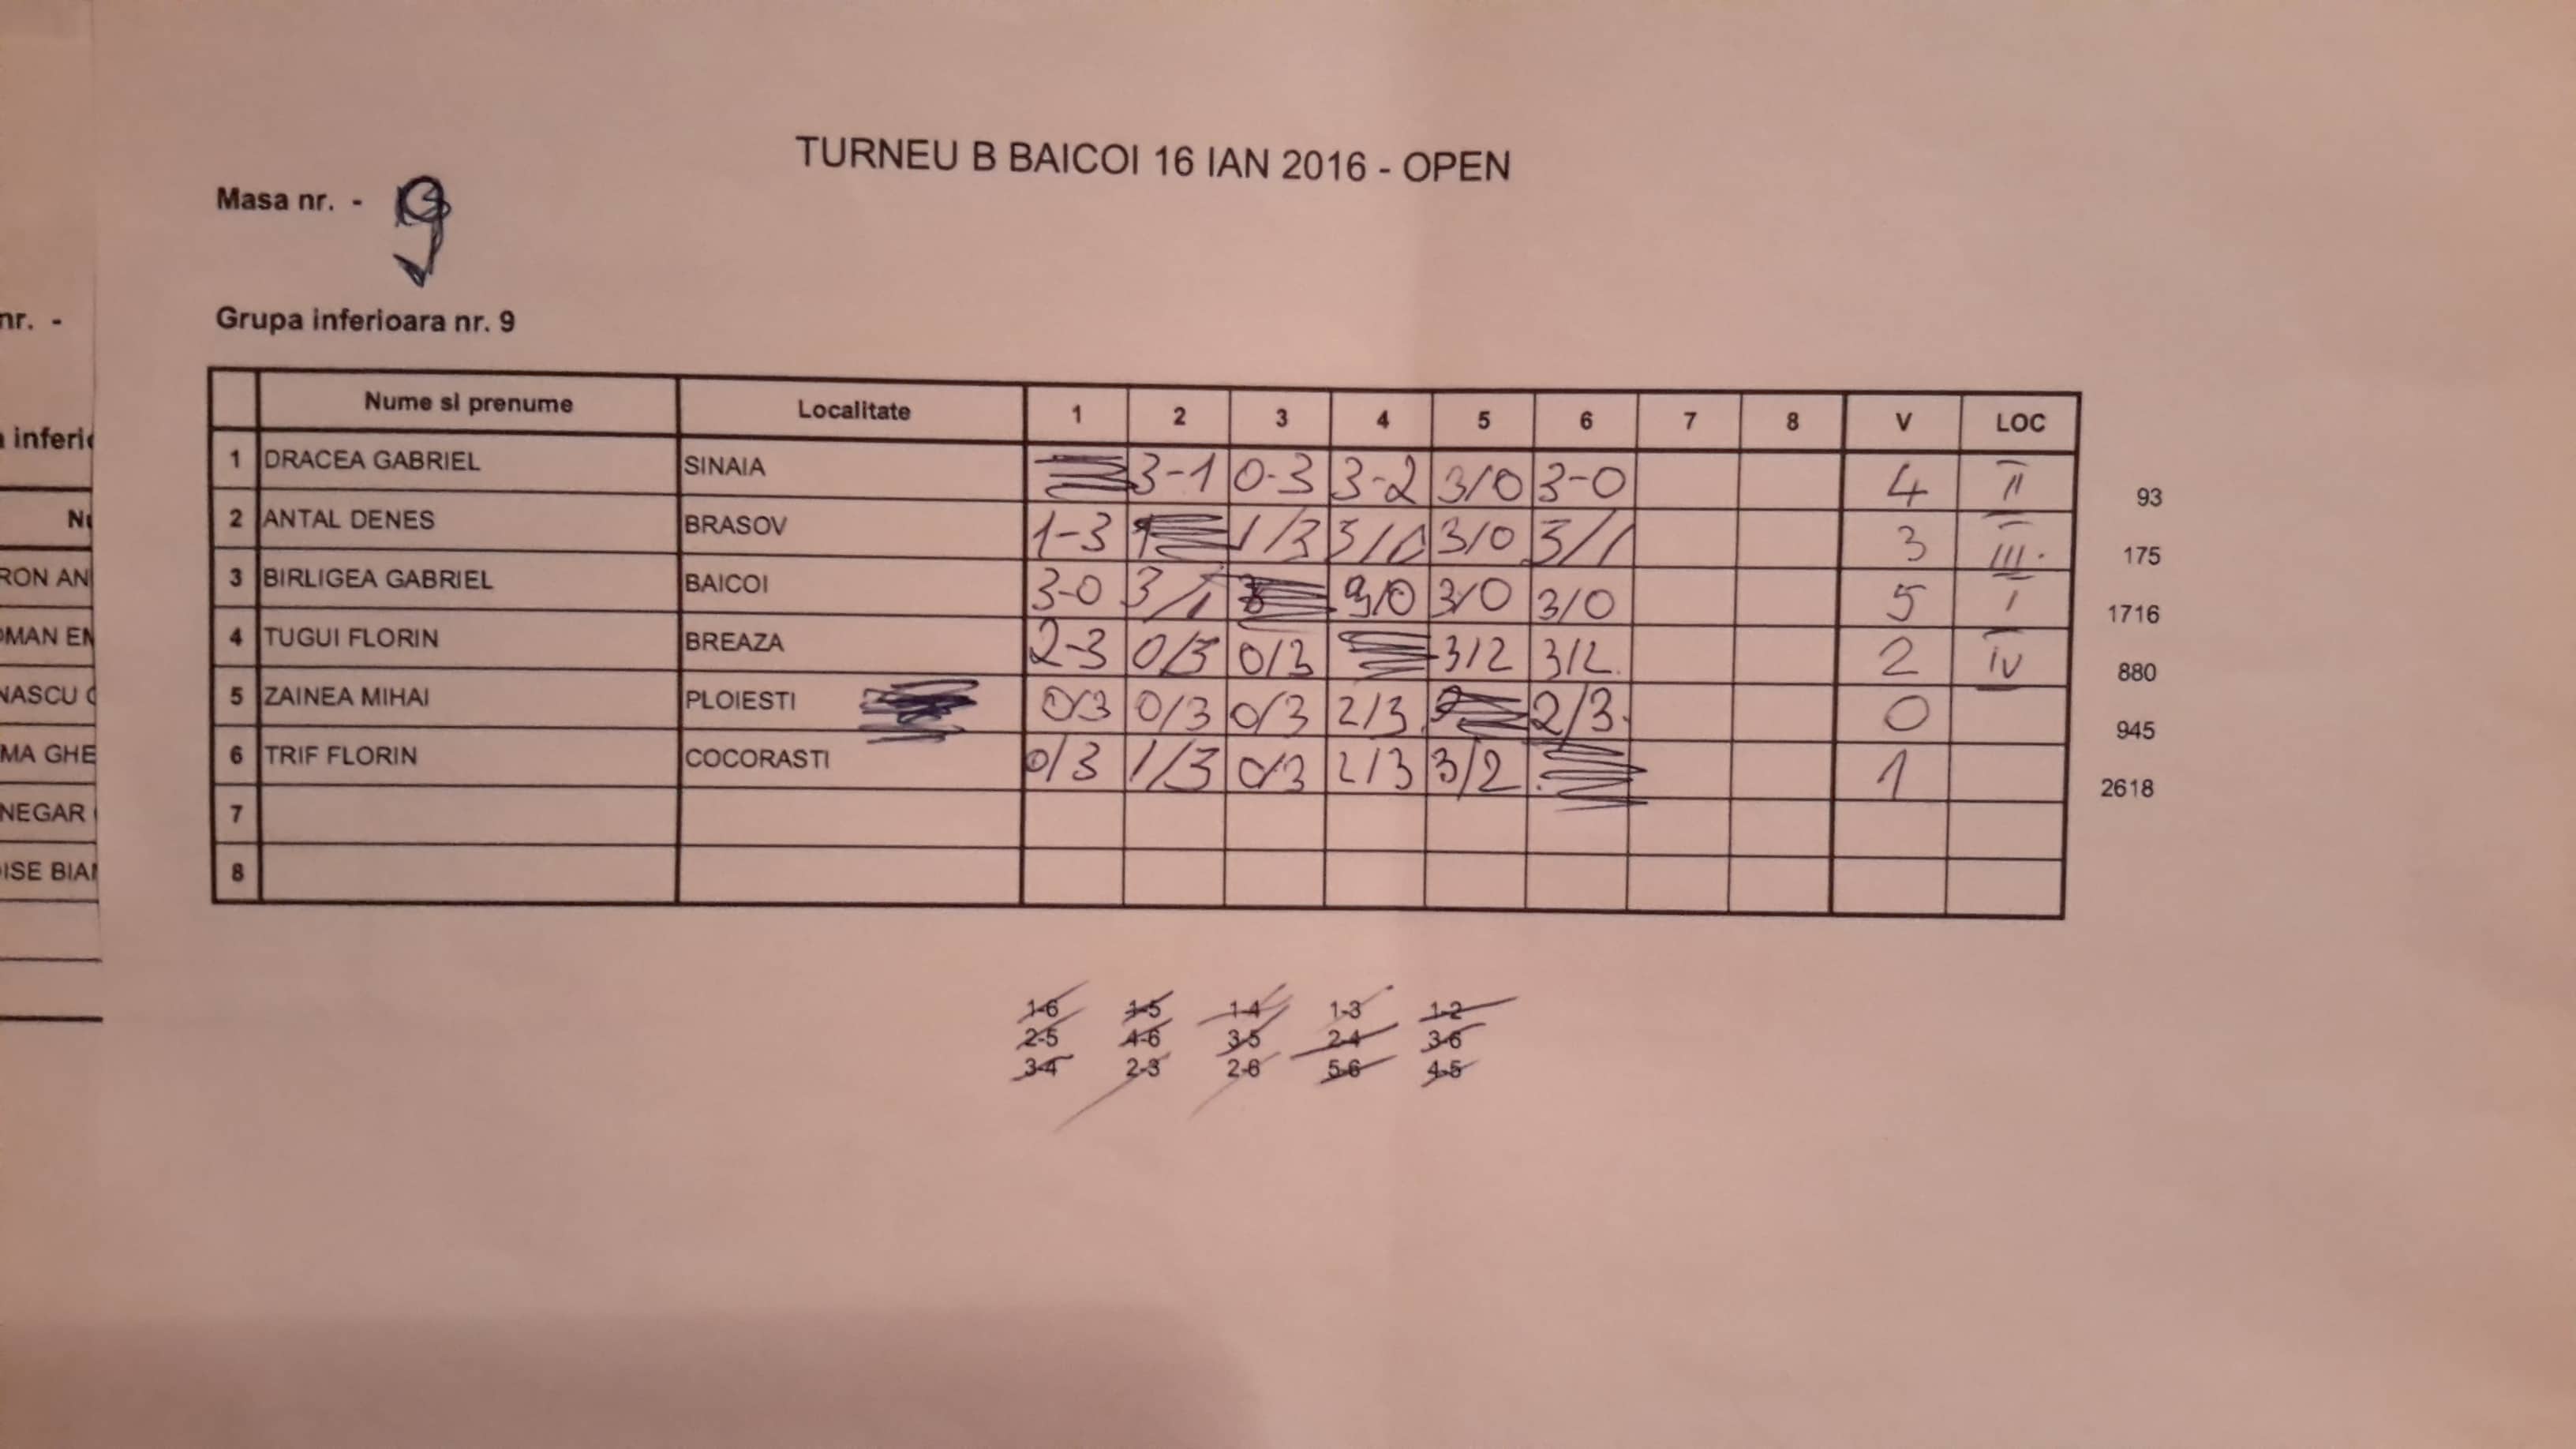 TURNEU B BAICOI 16 IAN 2016 - OPEN
Masa nr. - 9
nr. -
Grupa inferioara nr. 9
Nume si prenume Localitate 1 2 3 4 5 6 7 8 V LOC
1 DRACEA GABRIEL SINAIA 3-1 0-3 3-2 3/0 3-0 4 II 93
2 ANTAL DENES BRASOV 1-3 1/3 3/0 3/0 3/1 3 III. 175
3 BIRLIGEA GABRIEL BAICOI 3-0 3/1 3/0 3/0 3/0 5 I 1716
4 TUGUI FLORIN BREAZA 2-3 0/3 0/3 3/2 3/2. 2 IV 880
5 ZAINEA MIHAI PLOIESTI 0/3 0/3 0/3 2/3. 2/3. 0 945
6 TRIF FLORIN COCORASTI 0/3 1/3 0/3 2/3 3/2 1 2618
7
8
1-6 1-5 1-4 1-3 1-2
2-5 4-6 3-5 2-4 3-6
3-4 2-3 2-6 5-6 4-5
inferi
RON AN
MAN EN
NASCU
MA GHE
NEGAR
ISE BIA